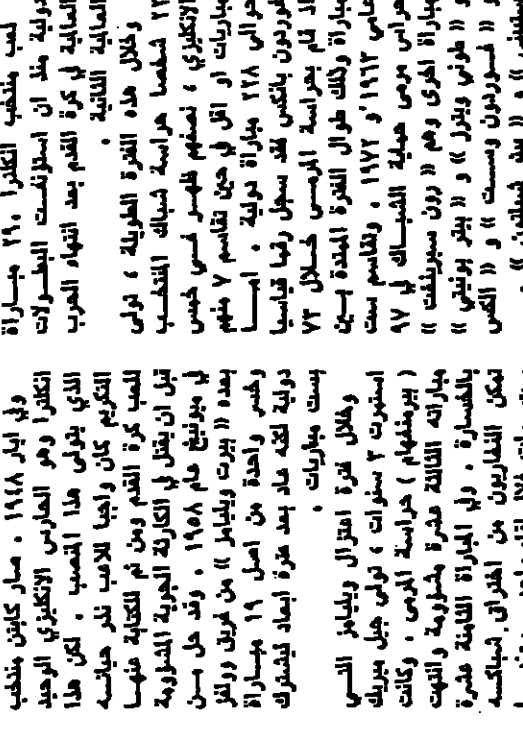 لعب منتخب انكلترا ٢٩٠ مباراة
دولية منذ ان استؤنفت البطولات
العالمية في كرة القدم بعد انتهاء الحرب
العالمية الثانية .
وخلال هذه الفترة الطويلة ، تولى
٢٣ شخصا حراسة شباك المنتخب
الانكليزي ، نصفهم ظهر في خمس
مباريات او اقل في حين تقاسم ٧ منهم
حوالي ٢٢٨ مباراة دولية . اما
غوردون بانكس فقد سجل رقما قياسيا
اذ قام بحراسة المرمى خلال ٧٣
مباراة وذلك طوال الفترة الممتدة بين
عامي ١٩٦٣ و ١٩٧٢ . وتقاسم ست
حراس مرمى حماية الشباك في ٩٧
مباراة اخرى وهم « رون سبرينغت »
و « طوني ويترز » و « بيتر بونيتي »
و « غوردون وست » و « الكس
و « بيتر شيلتون » .
وفي ايار ١٩٤٨ ، صار كابتن منتخب
انكلترا وهو الحارس الانكليزي الوحيد
الذي يتولى هذا المنصب . لكن هذا
التكريم كان واجبا للاعب نذر حياته
للعب كرة القدم ومن ثم للكتابة عنها
قبل ان يقتل في الكارثة الجوية المشؤومة
في ميونيخ عام ١٩٥٨ . وقد حل من
بعده « بيرت ويليامز » من فريق وولفز
وخسر واحدة من اصل ١٩ مباراة
دولية لكنه عاد بعد فترة ابعاد ليشترك
بست مباريات .
وخلال فترة اعتزال ويليامز التي
استمرت ٣ سنوات ، تولى جيل ميريك
( بيرمنغهام ) حراسة المرمى . وكانت
مباراته الثالثة عشرة مشؤومة وانتهت
بالخسارة . وفي المباراة الثامنة عشرة
تمكن النغاريون من اختراق شباكه